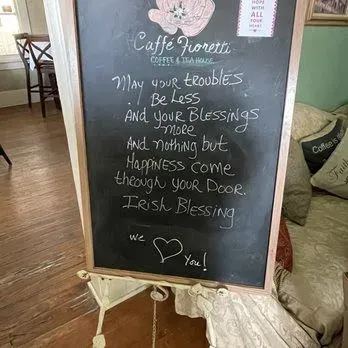 HOPE WITH
ALL YOUR
HEART
Caffé Fioretti
COFFEE & TEA HOUSE
May your troubles
Be Less
And your Blessings
more
And nothing but
Happiness come
through your Door.
Irish Blessing
we ♡ you!
Coffee is
Faith